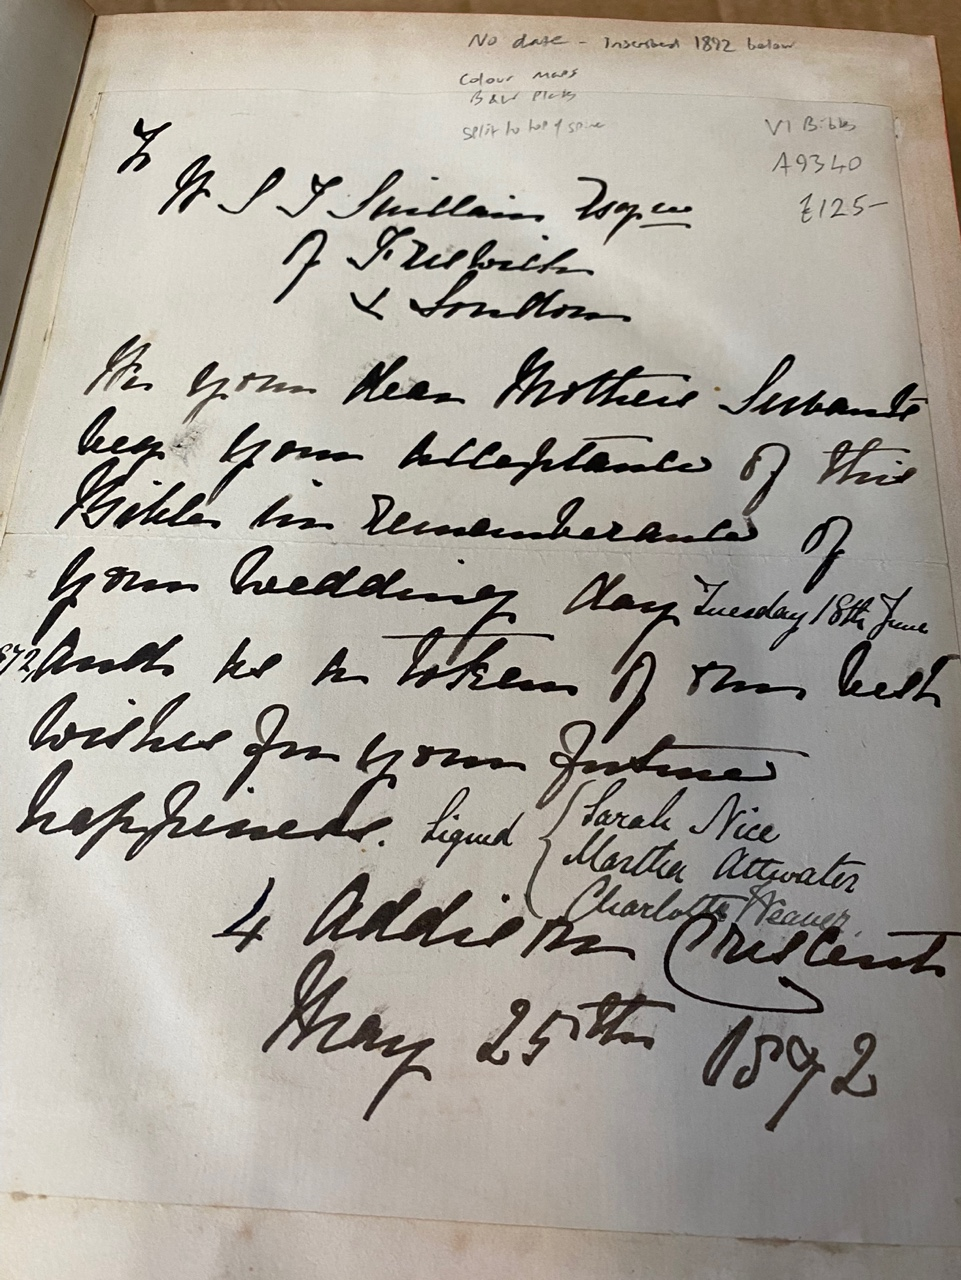 No date - Inscribed 1892 below
Colour Maps
B&W Plates
split to top of spine
VI Bibles
A9340
£125-
To
W S T Esqre
of
& London
We your dear Mothers Servants
beg your acceptance of this
Bible in rememberance of
your wedding day Tuesday 18th June
1872 and as a token of our best
wishes for your future
happiness. Signed { Sarah Nice
Martha Attwater
Charlotte Weaver
4 Addison Crescent
May 25th 1892